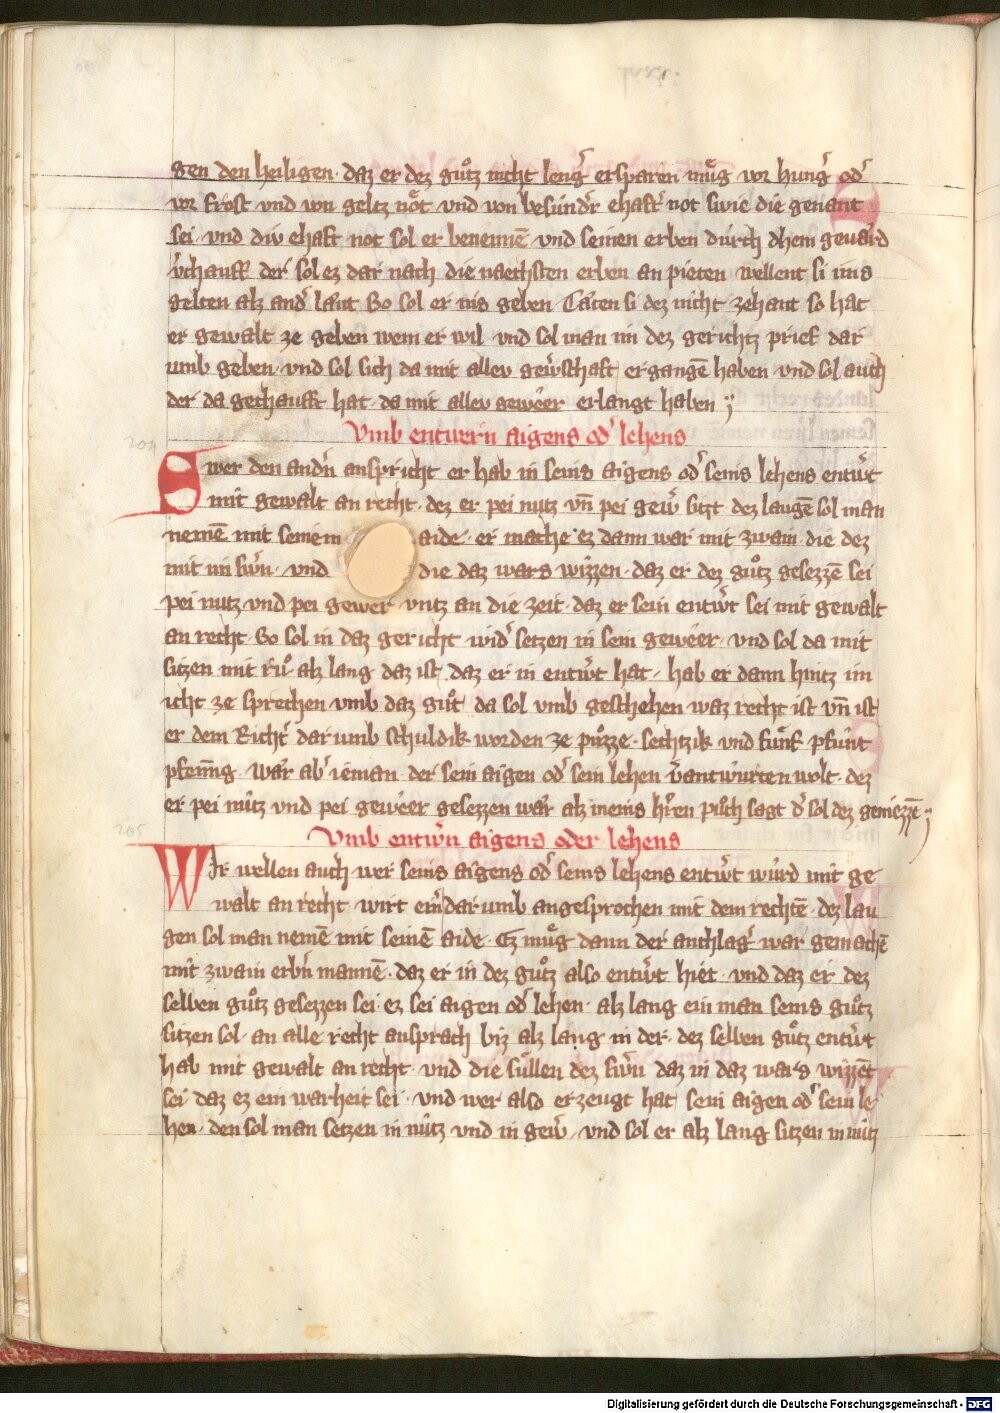 gen den heiligen · daz er dez guͦtz nicht leng᷑ ersparen muͤg vor hung᷑ od᷑
vor frost vnd von geltz nôt vnd von besund᷑r ehaft᷑ not swie die genant
sei · vnd div ehaft not sol er benennē vnd seinen erben durch dhein geuärd
v᷑chauff der sol ez dar nach die naechsten erben an pieten wellent si ims
gelten alz and᷑ läut So sol er ins geben · Täten si dez nicht zehant so hat
er gewalt ze geben wem er wil vnd sol man im dez gerichtz prief dar
umb geben · vnd sol sich da mit aller gew᷑schaft ergangē haben · vnd sol auch
der da gechaufft hat · da mit aller gewer erlangt haben ·
204
Vmb entwern aigens od᷑ lehens
Swer den and᷑n anspricht er hab in seins aigens od᷑ seins lehens entw᷑t
mit gewalt an recht · dez er pei nutz vn̄ pei gew᷑ sitzt dez laugē sol man
nemē mit seinem aide · er mache ez dann war mit zwain · die dez
mit im sw᷑n · vnd die daz wars wizzen · daz er dez guͦtz gesezzē sei
pei nutz vnd pei gewer vntz an die zeit · daz er sein entw᷑t sei mit gewalt
an recht · So sol in daz gericht wid᷑ setzen in sein gewer · vnd sol da mit
sitzen mit ruͦ · alz lang daz ist daz er in entw᷑t hat · hab er dann hintz im
icht ze sprechen vmb daz guͦt da sol vmb geschehen waz recht ist vn̄ ist
er dem Richt᷑ dar umb schuldik worden ze puͦzze · sechtzik vnd fuͤnf pfunt
pfennīg · wär ab᷑ ieman · der sein aigen od᷑ sein lehen v᷑antwurten wolt · dez
er pei nutz vnd pei gewer gesezzen wär alz meins h᷑ren puͦch sagt d᷑ sol dez geniezzē ·
205
Vmb entw᷑n aigens oder lehens
Wir wellen auch wer seins aigens od᷑ seins lehens entw᷑t wurd mit ge
walt an recht wirt ein᷑ dar umb angesprochen mit dem rechtē · dez lau
gen sol man nemē mit seinē aide · Ez muͤg dann der anchlag᷑ war gemachē
mit zwain erb᷑n mannē · daz er in dez guͦtz also entw᷑t hiet · vnd daz er dez
selben guͦtz gesezzen sei · ez sei aigen od᷑ lehen · alz lang ein man seins guͦtz
sitzen sol · an alle recht ansprach biz alz lang · in der · dez selben guͦtz entw᷑t
hab mit gewalt an recht · vnd die sullen dez sw᷑n daz in daz wars wizzēt
sei daz ez ein warheit sei · vnd wer also erzeugt hat sein aigen od᷑ sein le
hen · den sol man setzen in nutz vnd in gew᷑ · vnd sol er alz lang sitzen in nutz
Digitalisierung gefördert durch die Deutsche Forschungsgemeinschaft - DFG